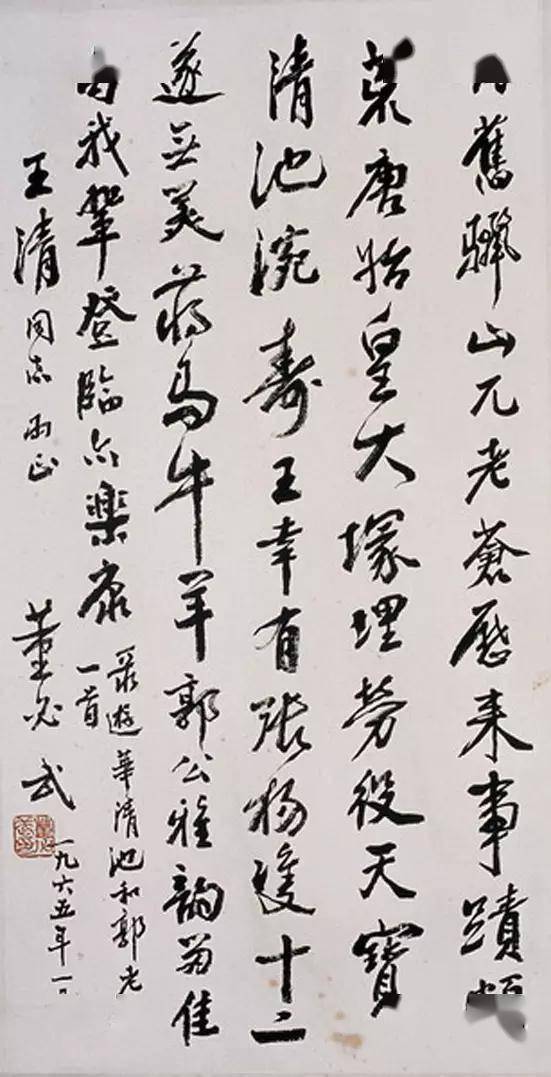 舊驪山兀老蒼歷來事蹟
唐始皇大塚埋勞役天寶
清池浣壽王幸有張楊獲十二
遂無美蔣馬牛羊郭公雅韻留佳
我輩登臨亦樂康
遊華清池和郭老
一首
王清同志正
董必武
一九六五年一